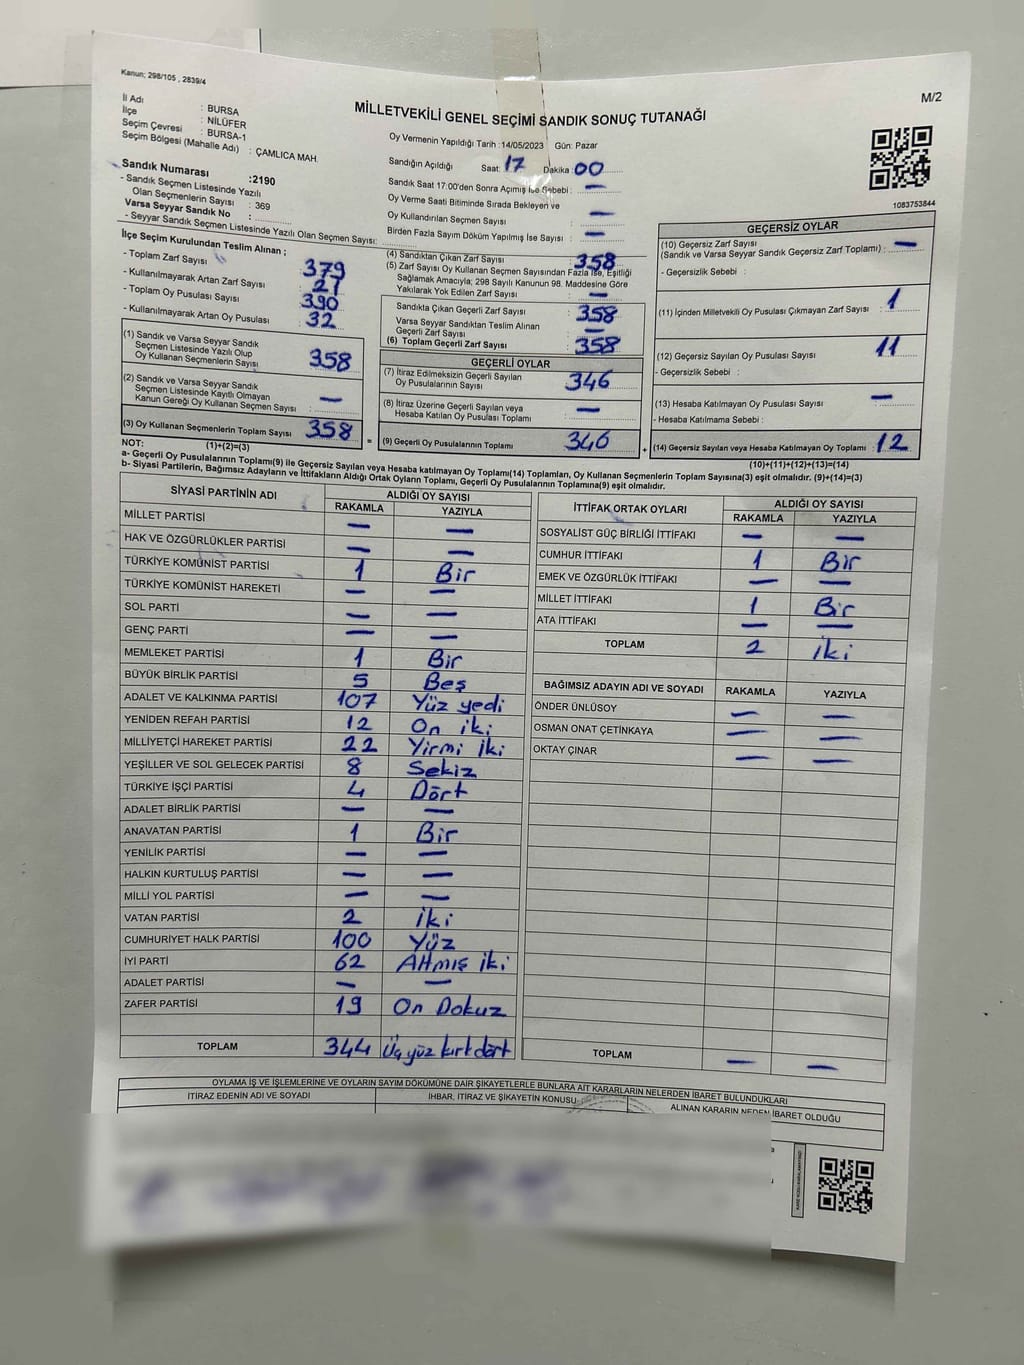 Kanun; 298/105 , 2839/4
M/2
İl Adı : BURSA
İlçe : NİLÜFER
Seçim Çevresi : BURSA-1
Seçim Bölgesi (Mahalle Adı) : ÇAMLICA MAH.
MİLLETVEKİLİ GENEL SEÇİMİ SANDIK SONUÇ TUTANAĞI
Oy Vermenin Yapıldığı Tarih :14/05/2023 Gün: Pazar
Sandığın Açıldığı Saat: 17 Dakika: 00
Sandık Saat 17:00'den Sonra Açımış İse Sebebi : —
Oy Verme Saati Bitiminde Sırada Bekleyen ve
Oy Kullandırılan Seçmen Sayısı : —
Birden Fazla Sayım Döküm Yapılmış İse Sayısı : —
1083753844
Sandık Numarası :2190
- Sandık Seçmen Listesinde Yazılı
Olan Seçmenlerin Sayısı : 369
Varsa Seyyar Sandık No :
- Seyyar Sandık Seçmen Listesinde Yazılı Olan Seçmen Sayısı:
İlçe Seçim Kurulundan Teslim Alınan ;
- Toplam Zarf Sayısı 379
- Kullanılmayarak Artan Zarf Sayısı : 21
- Toplam Oy Pusulası Sayısı 390
- Kullanılmayarak Artan Oy Pusulası : 32
(1) Sandık ve Varsa Seyyar Sandık
Seçmen Listesinde Yazılı Olup
Oy Kullanan Seçmenlerin Sayısı : 358
(2) Sandık ve Varsa Seyyar Sandık
Seçmen Listesinde Kayıtlı Olmayan
Kanun Gereği Oy Kullanan Seçmen Sayısı : —
(3) Oy Kullanan Seçmenlerin Toplam Sayısı : 358
(4) Sandıktan Çıkan Zarf Sayısı : 358
(5) Zarf Sayısı Oy Kullanan Seçmen Sayısından Fazla İse, Eşitliği
Sağlamak Amacıyla; 298 Sayılı Kanunun 98. Maddesine Göre
Yakılarak Yok Edilen Zarf Sayısı : —
Sandıkta Çıkan Geçerli Zarf Sayısı : 358
Varsa Seyyar Sandıktan Teslim Alınan
Geçerli Zarf Sayısı : —
(6) Toplam Geçerli Zarf Sayısı : 358
GEÇERLİ OYLAR
(7) İtiraz Edilmeksizin Geçerli Sayılan
Oy Pusulalarının Sayısı : 346
(8) İtiraz Üzerine Geçerli Sayılan veya
Hesaba Katılan Oy Pusulası Toplamı : —
= (9) Geçerli Oy Pusulalarının Toplamı : 346
GEÇERSİZ OYLAR
(10) Geçersiz Zarf Sayısı
(Sandık ve Varsa Seyyar Sandık Geçersiz Zarf Toplamı) : —
- Geçersizlik Sebebi :
(11) İçinden Milletvekili Oy Pusulası Çıkmayan Zarf Sayısı : 1
(12) Geçersiz Sayılan Oy Pusulası Sayısı : 11
- Geçersizlik Sebebi :
(13) Hesaba Katılmayan Oy Pusulası Sayısı : —
- Hesaba Katılmama Sebebi :
+ (14) Geçersiz Sayılan veya Hesaba Katılmayan Oy Toplamı : 12
NOT: (1)+(2)=(3)
(10)+(11)+(12)+(13)=(14)
a- Geçerli Oy Pusulalarının Toplamı(9) ile Geçersiz Sayılan veya Hesaba katılmayan Oy Toplamı(14) Toplamları, Oy Kullanan Seçmenlerin Toplam Sayısına(3) eşit olmalıdır. (9)+(14)=(3)
b- Siyasi Partilerin, Bağımsız Adayların ve İttifakların Aldığı Ortak Oyların Toplamı, Geçerli Oy Pusulalarının Toplamına(9) eşit olmalıdır.
SİYASİ PARTİNİN ADI ALDIĞI OY SAYISI
RAKAMLA YAZIYLA
MİLLET PARTİSİ — —
HAK VE ÖZGÜRLÜKLER PARTİSİ — —
TÜRKİYE KOMÜNİST PARTİSİ 1 Bir
TÜRKİYE KOMÜNİST HAREKETİ — —
SOL PARTİ — —
GENÇ PARTİ — —
MEMLEKET PARTİSİ 1 Bir
BÜYÜK BİRLİK PARTİSİ 5 Beş
ADALET VE KALKINMA PARTİSİ 107 Yüz yedi
YENİDEN REFAH PARTİSİ 12 On iki
MİLLİYETÇİ HAREKET PARTİSİ 22 Yirmi iki
YEŞİLLER VE SOL GELECEK PARTİSİ 8 Sekiz
TÜRKİYE İŞÇİ PARTİSİ 4 Dört
ADALET BİRLİK PARTİSİ — —
ANAVATAN PARTİSİ 1 Bir
YENİLİK PARTİSİ — —
HALKIN KURTULUŞ PARTİSİ — —
MİLLİ YOL PARTİSİ — —
VATAN PARTİSİ 2 iki
CUMHURİYET HALK PARTİSİ 100 Yüz
İYİ PARTİ 62 Altmış iki
ADALET PARTİSİ — —
ZAFER PARTİSİ 19 On Dokuz
TOPLAM 344 Üç yüz kırk dört
İTTİFAK ORTAK OYLARI ALDIĞI OY SAYISI
RAKAMLA YAZIYLA
SOSYALİST GÜÇ BİRLİĞİ İTTİFAKI — —
CUMHUR İTTİFAKI 1 Bir
EMEK VE ÖZGÜRLÜK İTTİFAKI — —
MİLLET İTTİFAKI 1 Bir
ATA İTTİFAKI — —
TOPLAM 2 iki
BAĞIMSIZ ADAYIN ADI VE SOYADI RAKAMLA YAZIYLA
ÖNDER ÜNLÜSOY — —
OSMAN ONAT ÇETİNKAYA — —
OKTAY ÇINAR — —
TOPLAM — —
OYLAMA İŞ VE İŞLEMLERİNE VE OYLARIN SAYIM DÖKÜMÜNE DAİR ŞİKAYETLERLE BUNLARA AİT KARARLARIN NELERDEN İBARET BULUNDUKLARI
İTİRAZ EDENİN ADI VE SOYADI İHBAR, İTİRAZ VE ŞİKAYETİN KONUSU ALINAN KARARIN NEDEN İBARET OLDUĞU